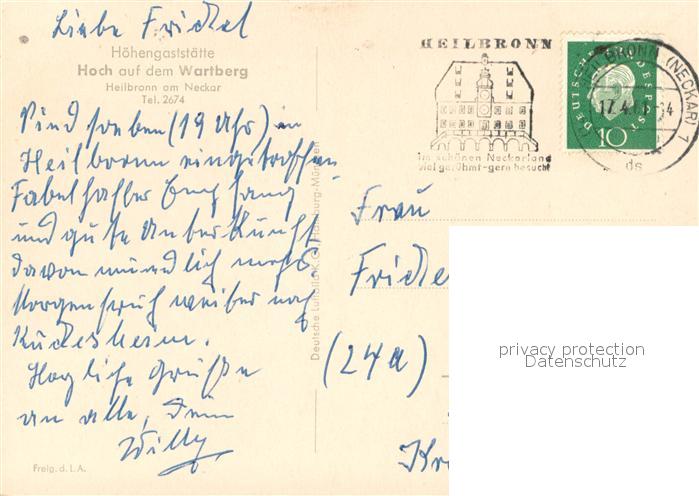 Liebe Friedel
Höhengaststätte
Hoch auf dem Wartberg
Heilbronn am Neckar
Tel. 2674
Sind soeben (19 Uhr) in
Heilbronn eingetroffen
Fabelhafter Empfang
und gute Unterkunft,
davon mündlich mehr
Morgen früh weiter nach
Rüdesheim.
Herzliche Grüße
an alle, Dein
Willy
Freig. d. I. A.
Deutsche Luftbild K.G. Hamburg-München
HEILBRONN
im schönen Neckarland
viel gerühmt-gern besucht
DEUTSCHE BUNDESPOST
10
HEILBRONN (NECKAR) 1
17.4.
ds
Frau
(24a)
privacy protection
Datenschutz